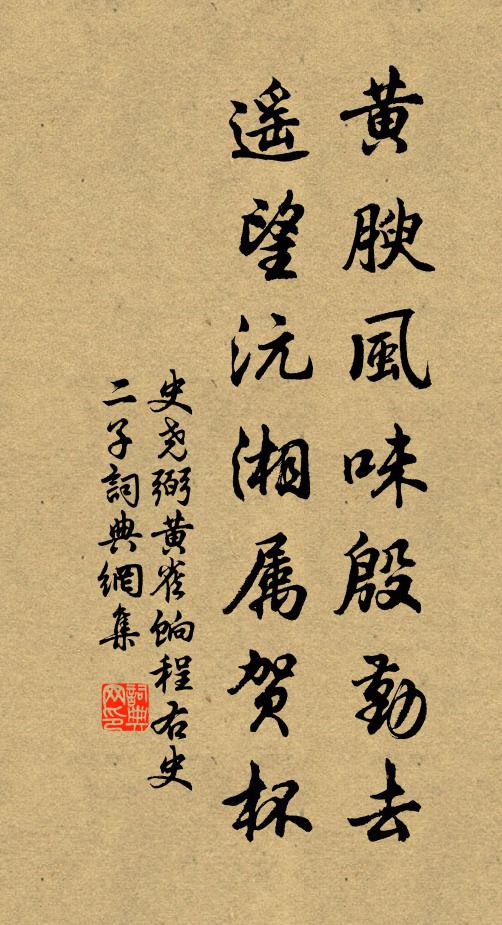 黄腴風味殷勤去
遥望沅湘属贺杯
史尧弼黄雀饷程右史
二子詞典網集
詞典网印